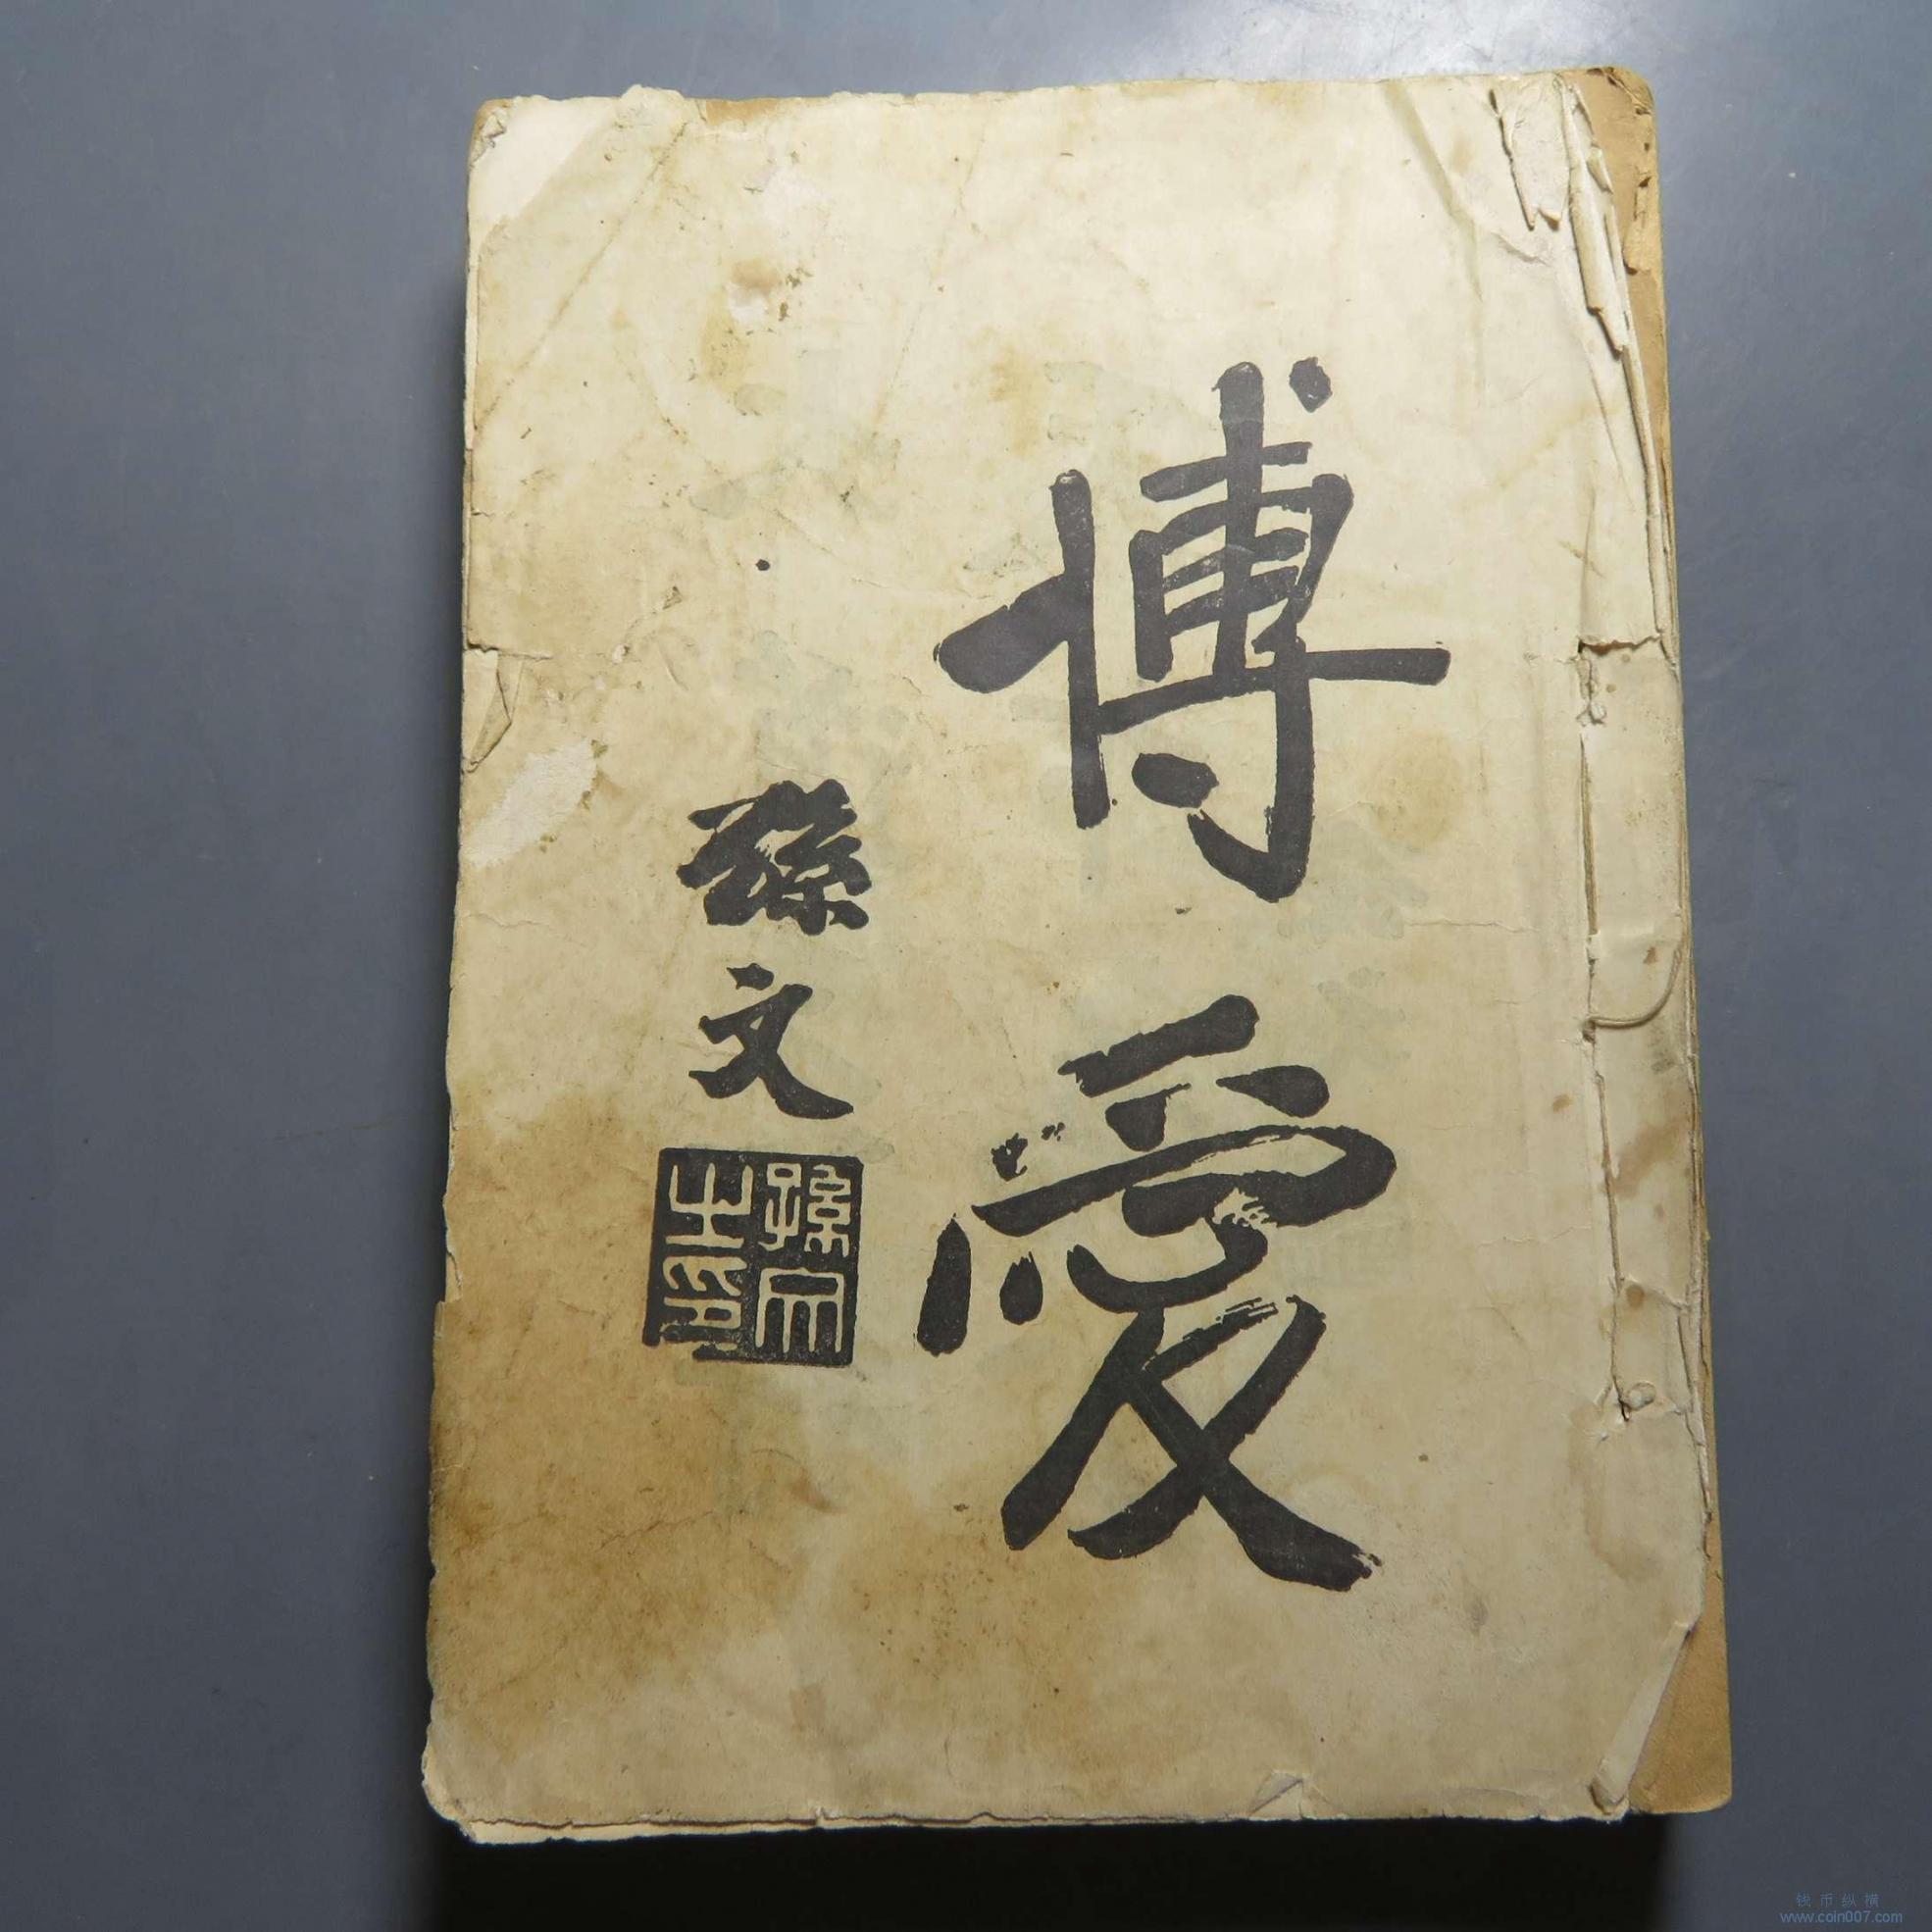 博愛
孫文
孫文之印
钱币纵横
www.coin007.com